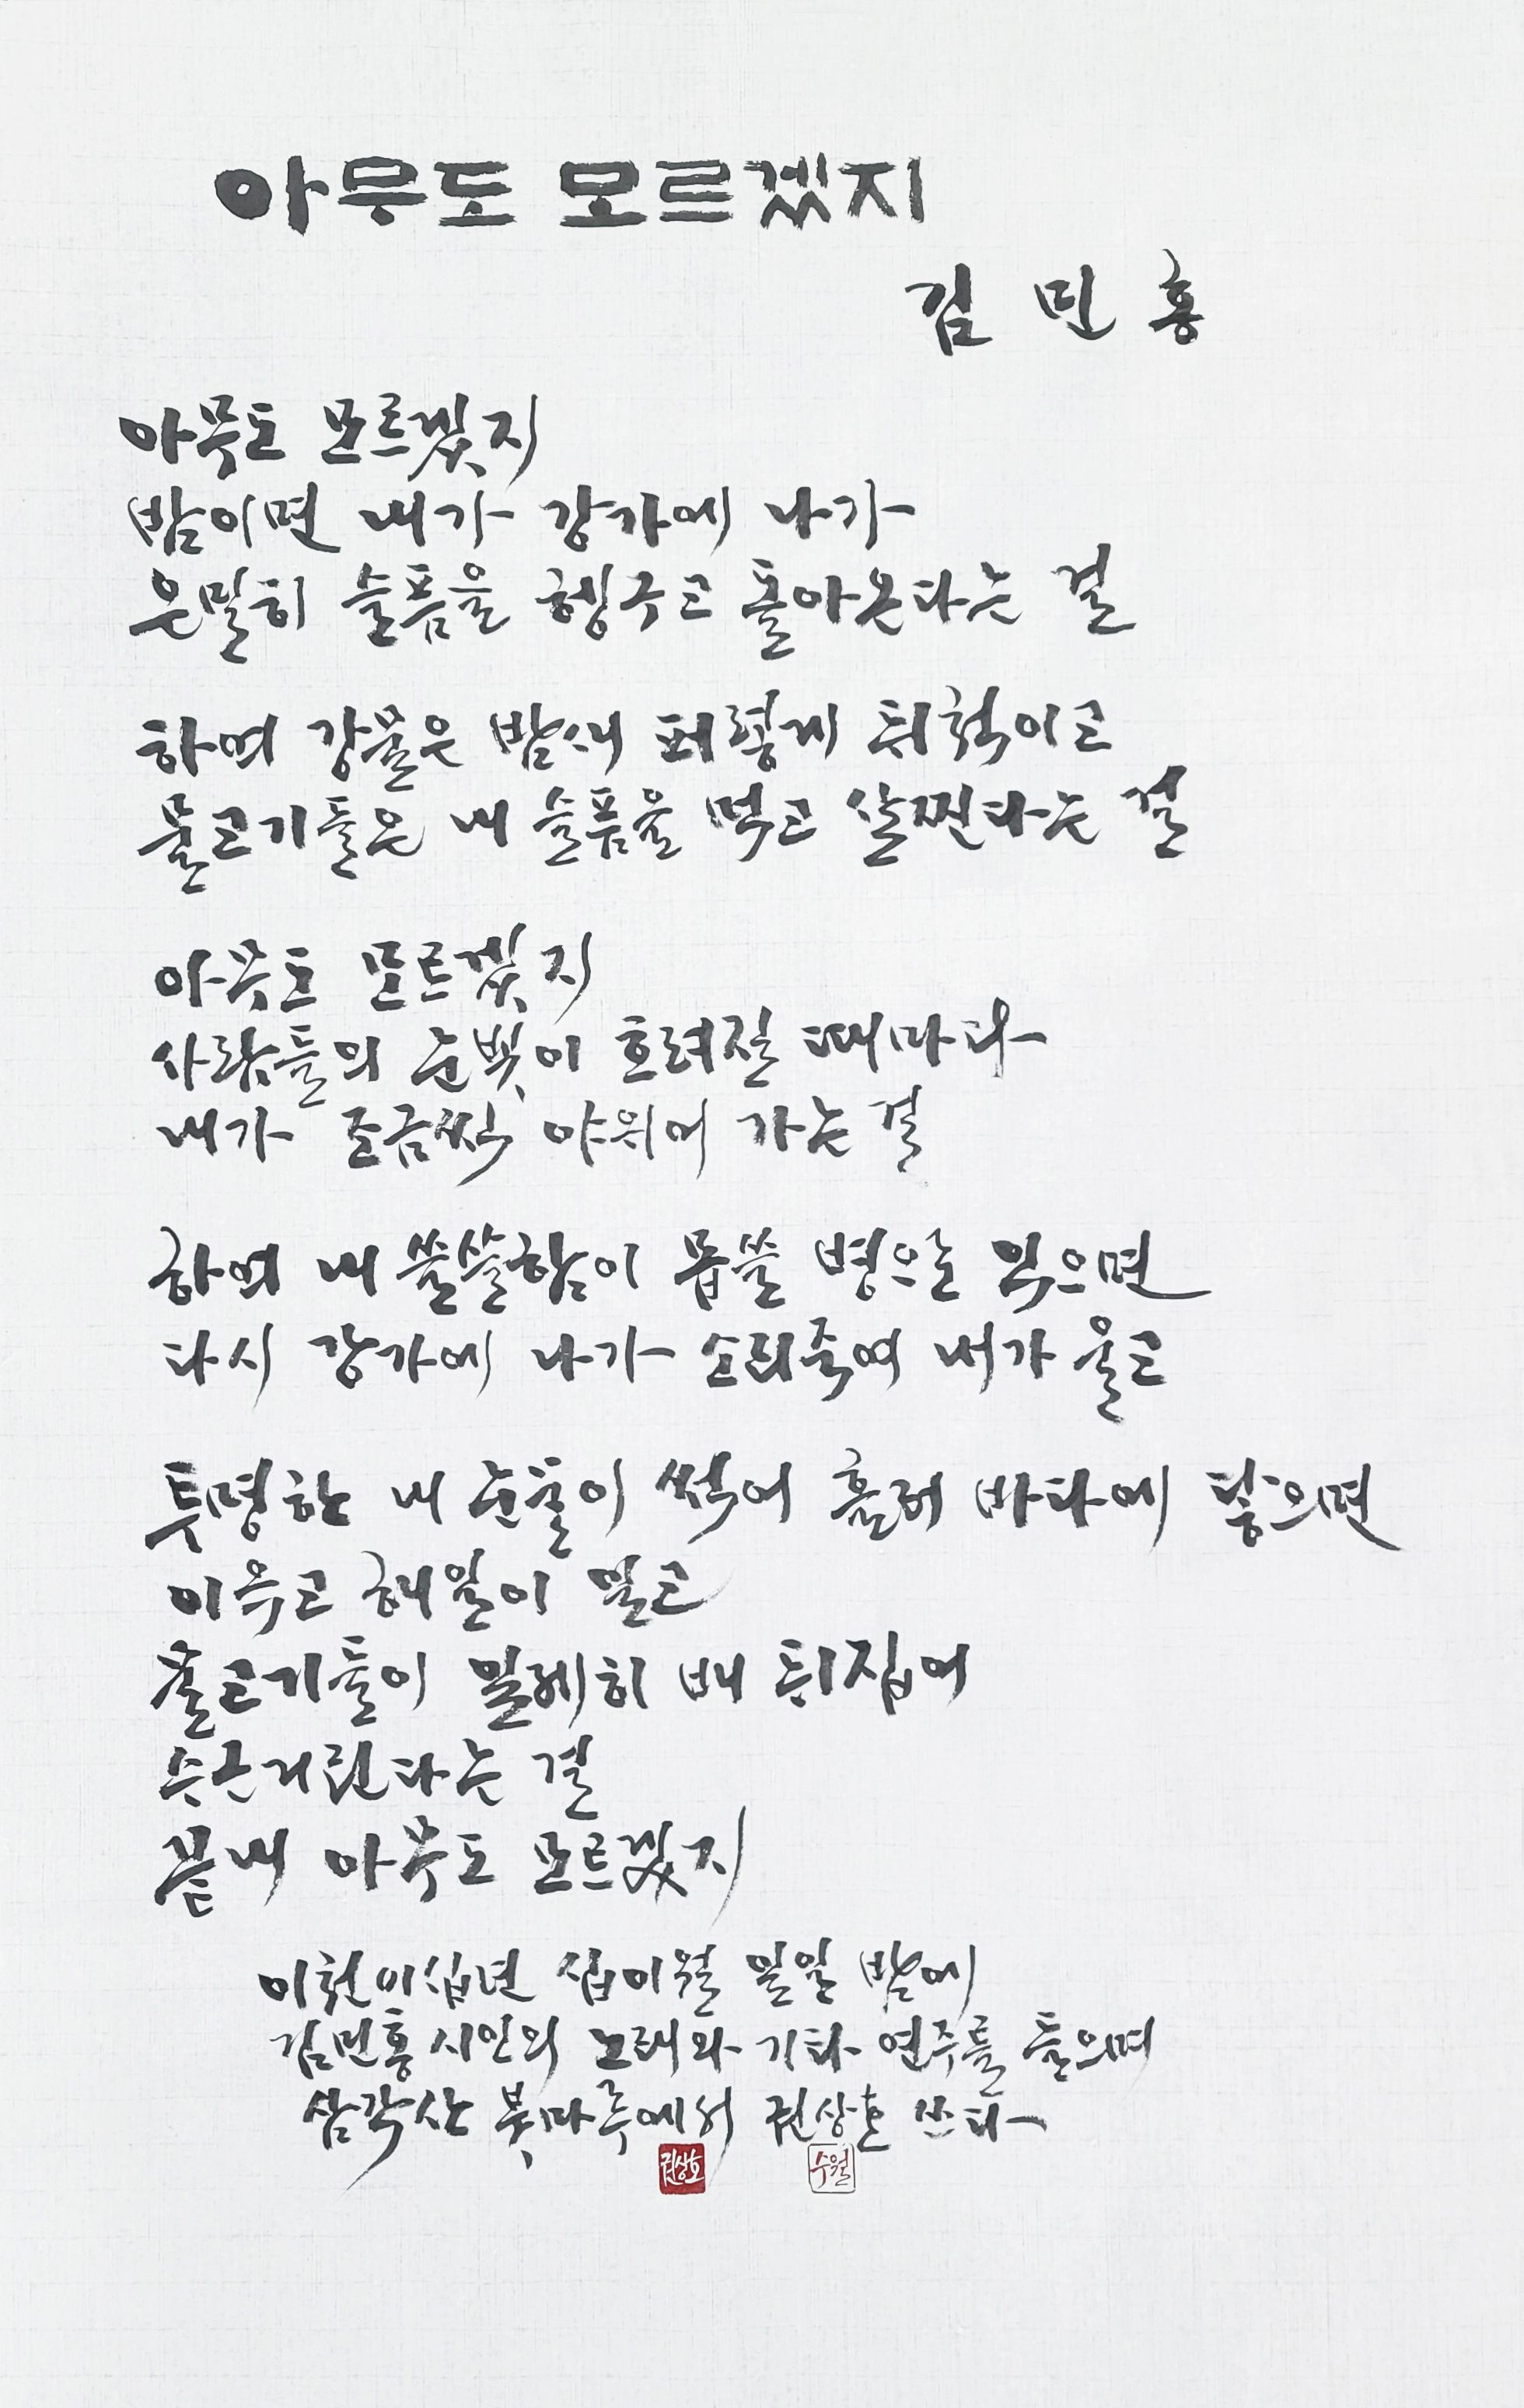 아무도 모르겠지
김민홍
아무도 모르겠지
밤이면 내가 강가에 나가
은밀히 슬픔을 헹구고 돌아온다는 걸
하여 강물은 밤새 퍼렇게 뒤척이고
물고기들은 내 슬픔을 먹고 살찐다는 걸
아무도 모르겠지
사람들의 눈빛이 흐려질 때마다
내가 조금씩 야위어 가는 걸
하여 내 쓸쓸함이 몹쓸 병으로 익으면
다시 강가에 나가 소리죽여 내가 울고
투명한 내 눈물이 썩어 흘러 바다에 닿으면
이윽고 해일이 일고
물고기들이 일제히 배 뒤집어
수근거린다는 걸
끝내 아무도 모르겠지
이천이십년 십이월 일일 밤에
김민홍 시인의 노래와 기타 연주를 들으며
삼각산 붓마루에서 권상호 쓰다
권상호 수월